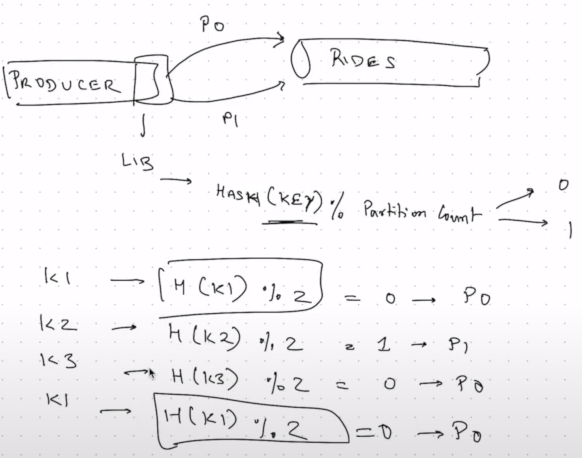 P0
RIDES
PRODUCER
P1
LIB
HASH (KEY) % Partition Count
0
1
K1 → H (K1) % 2 = 0 → P0
K2 → H (K2) % 2 = 1 → P1
K3 → H (K3) % 2 = 0 → P0
K1 → H (K1) % 2 = 0 → P0